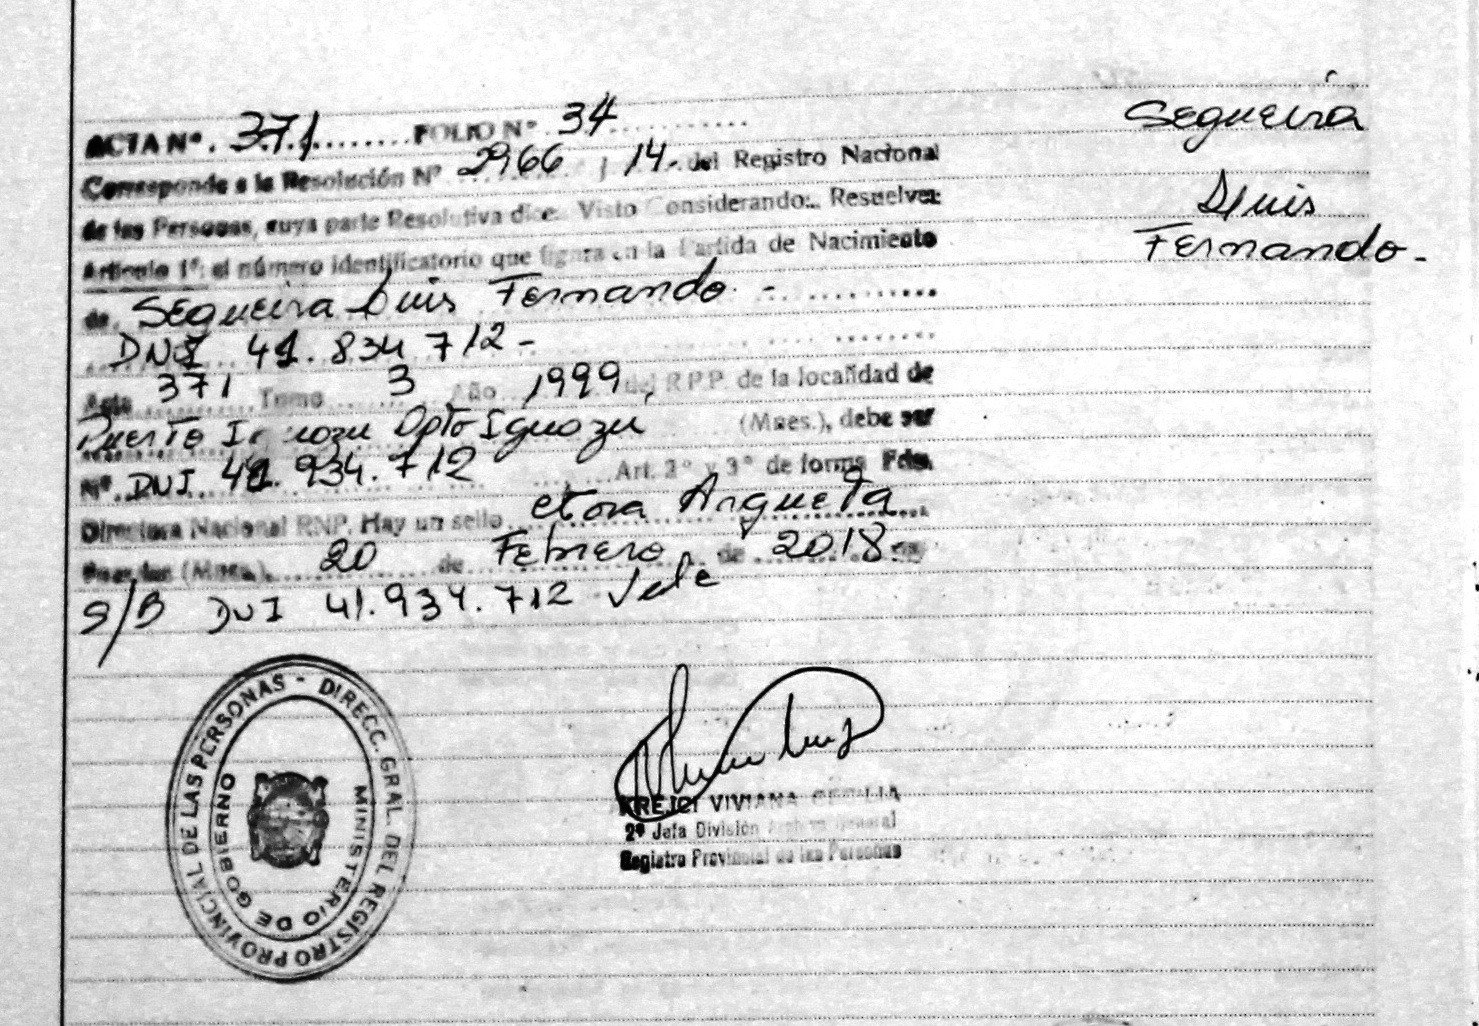 ACTA Nº. 371 FOLIO Nº 34
Corresponde a la Resolución Nº 2966 / 14- del Registro Nacional
de las Personas, cuya parte Resolutiva dice: Visto Considerando: Resuelve:
Artículo 1º: el número identificatorio que figura en la Partida de Nacimiento
de Segueira Luis Fernando -
DNI 41.834 712-
Acta 371 Tomo 3 Año 1999 del R.P.P. de la localidad de
Puerto Iguazu Dpto Iguazu (Mnes.), debe ser
Nº DNI 41.934.712 Art. 2º y 3º de forma Fdo.
Directora Nacional RNP. Hay un sello ctora Argueta
Posadas (Mnes.), 20 de Febrero de 2018-
S/B DNI 41.934.712 Vale
Segueira
Luis
Fernando-
DIRECC. GRAL. DEL REGISTRO PROVINCIAL DE LAS PERSONAS -
MINISTERIO DE GOBIERNO
KREJCI VIVIANA CECILIA
2º Jefa División Archivo General
Registro Provincial de las Personas